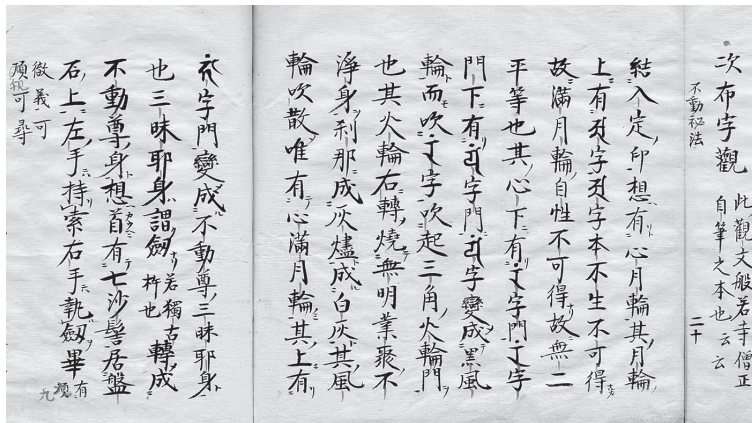 次布字觀 此觀文般若寺僧正
自筆之本也云云
不動祕法 二十
結入定印想有心月輪其月輪
上有𑖀字𑖀字本不生不可得
故滿月輪自性不可得故無二
平等也其心下有字門字
門下有字門字變成黑風
輪而吹字吹起三角火輪門
也其火輪右轉燒無明業聚不
淨身刹那成灰燼成白灰其風
輪吹散唯有心滿月輪其上有
字門變成不動尊三昧耶身
也三昧耶身謂劒若獨古杵也轉成
不動尊身想首有七沙髻居盤
石上左手持索右手執劒畢
義可
可尋